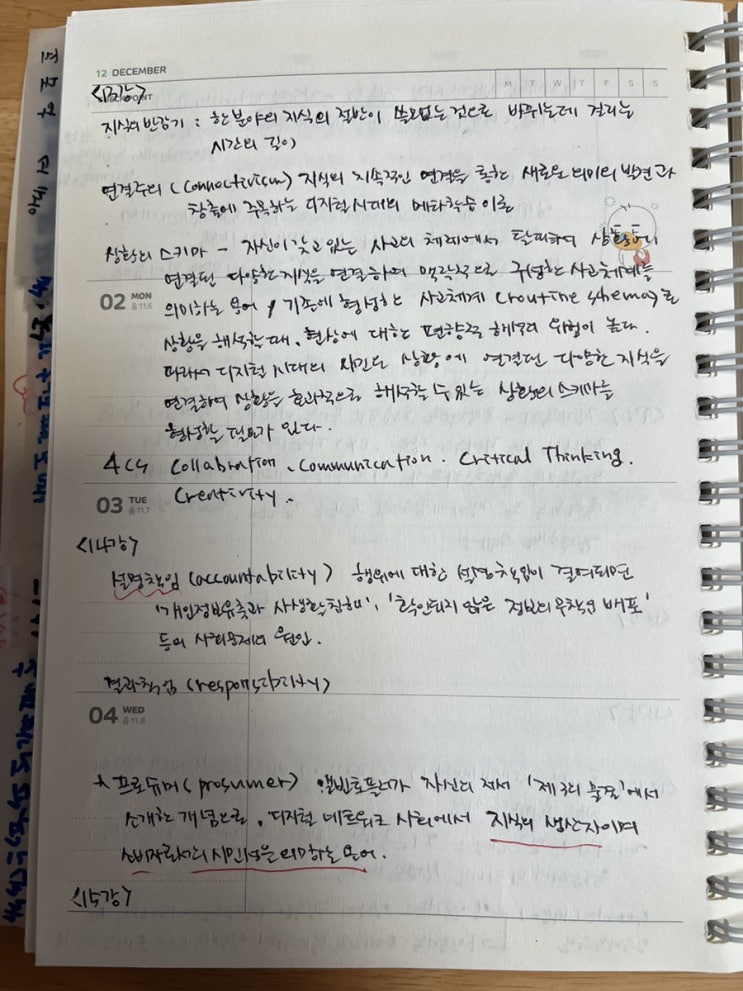 12 DECEMBER
M T W T F S S
<13강> CHECKPOINT
지식의 반감기 : 한 분야의 지식의 절반이 쓸모없는 것으로 바뀌는데 걸리는
시간의 길이
연결주의 (Connectivism) 지식의 지속적인 연결을 통한 새로운 의미의 발견과
창출에 주목하는 디지털 시대의 메타학습 이론
상황의 스키마 - 자신이 갖고 있는 사고의 체계에서 탈피하여 상황에
연결된 다양한 지식을 연결하여 맥락적으로 구성한 사고체계를
02 MON 음 11.6
의미하는 용어, 기존에 형성한 사고체계 (routine schema)로
상황을 해석할 때, 현상에 대한 편향적 해석의 위험이 높다.
따라서 디지털 시대의 시민은 상황에 연결된 다양한 지식을
연결하여 상황을 효과적으로 해석할 수 있는 상황의 스키마를
형성할 필요가 있다.
4Cs Collabration, Communication. Critical Thinking.
03 TUE 음 11.7
Creativity.
<14강>
설명책임 (accountability) 행위에 대한 설명책임이 결여되면
'개인정보유출과 사생활침해', '확인되지 않은 정보의 무책임 배포'
등의 사회문제의 원인.
결과책임 (responsibility)
04 WED 음 11.8
* 프로슈머 (prosumer) 앨빈토플러가 자신의 저서 '제3의 물결'에서
소개한 개념으로, 디지털 네트워크 사회에서 지식의 생산자이며
소비자로서의 시민성을 의미하는 용어.
<15강>